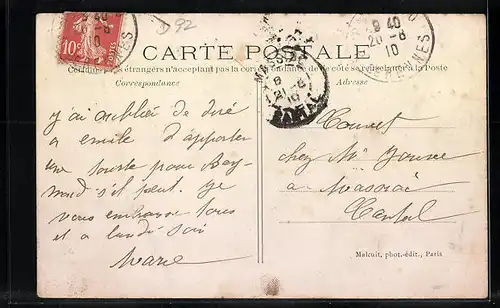 D92
10c
9 40
20-8
10
CARTE POSTALE
9 40
20-8
10
NNES
Certains pays étrangers n'acceptant pas la correspondance de ce côté se renseigner à la Poste
Correspondance
Adresse
8
21-8
10
CANTAL
j'ai oublié de dire
a emile d'apporter
une tourte pour Ray-
mond s'il peut. Je
vous embrasse tous
et a lundi soir
Marie
chez Mr
a Massiac
Cantal
Malcuit, phot.-édit., Paris